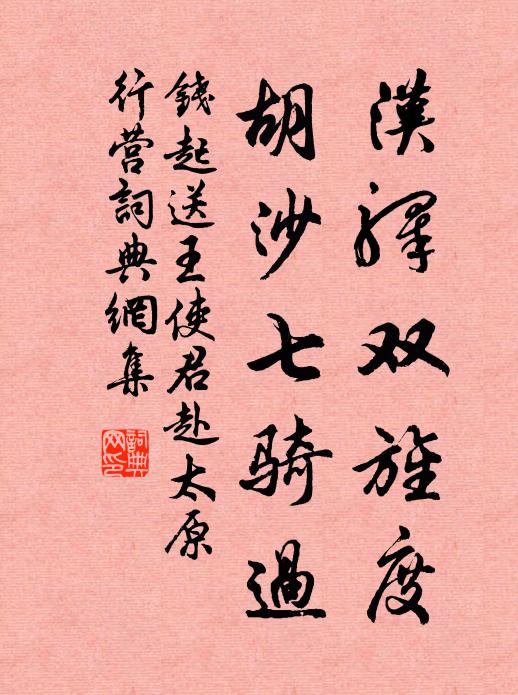 漢驛双旌度
胡沙七騎過
錢起送王使君赴太原
行營詞典網集
詞典
网印